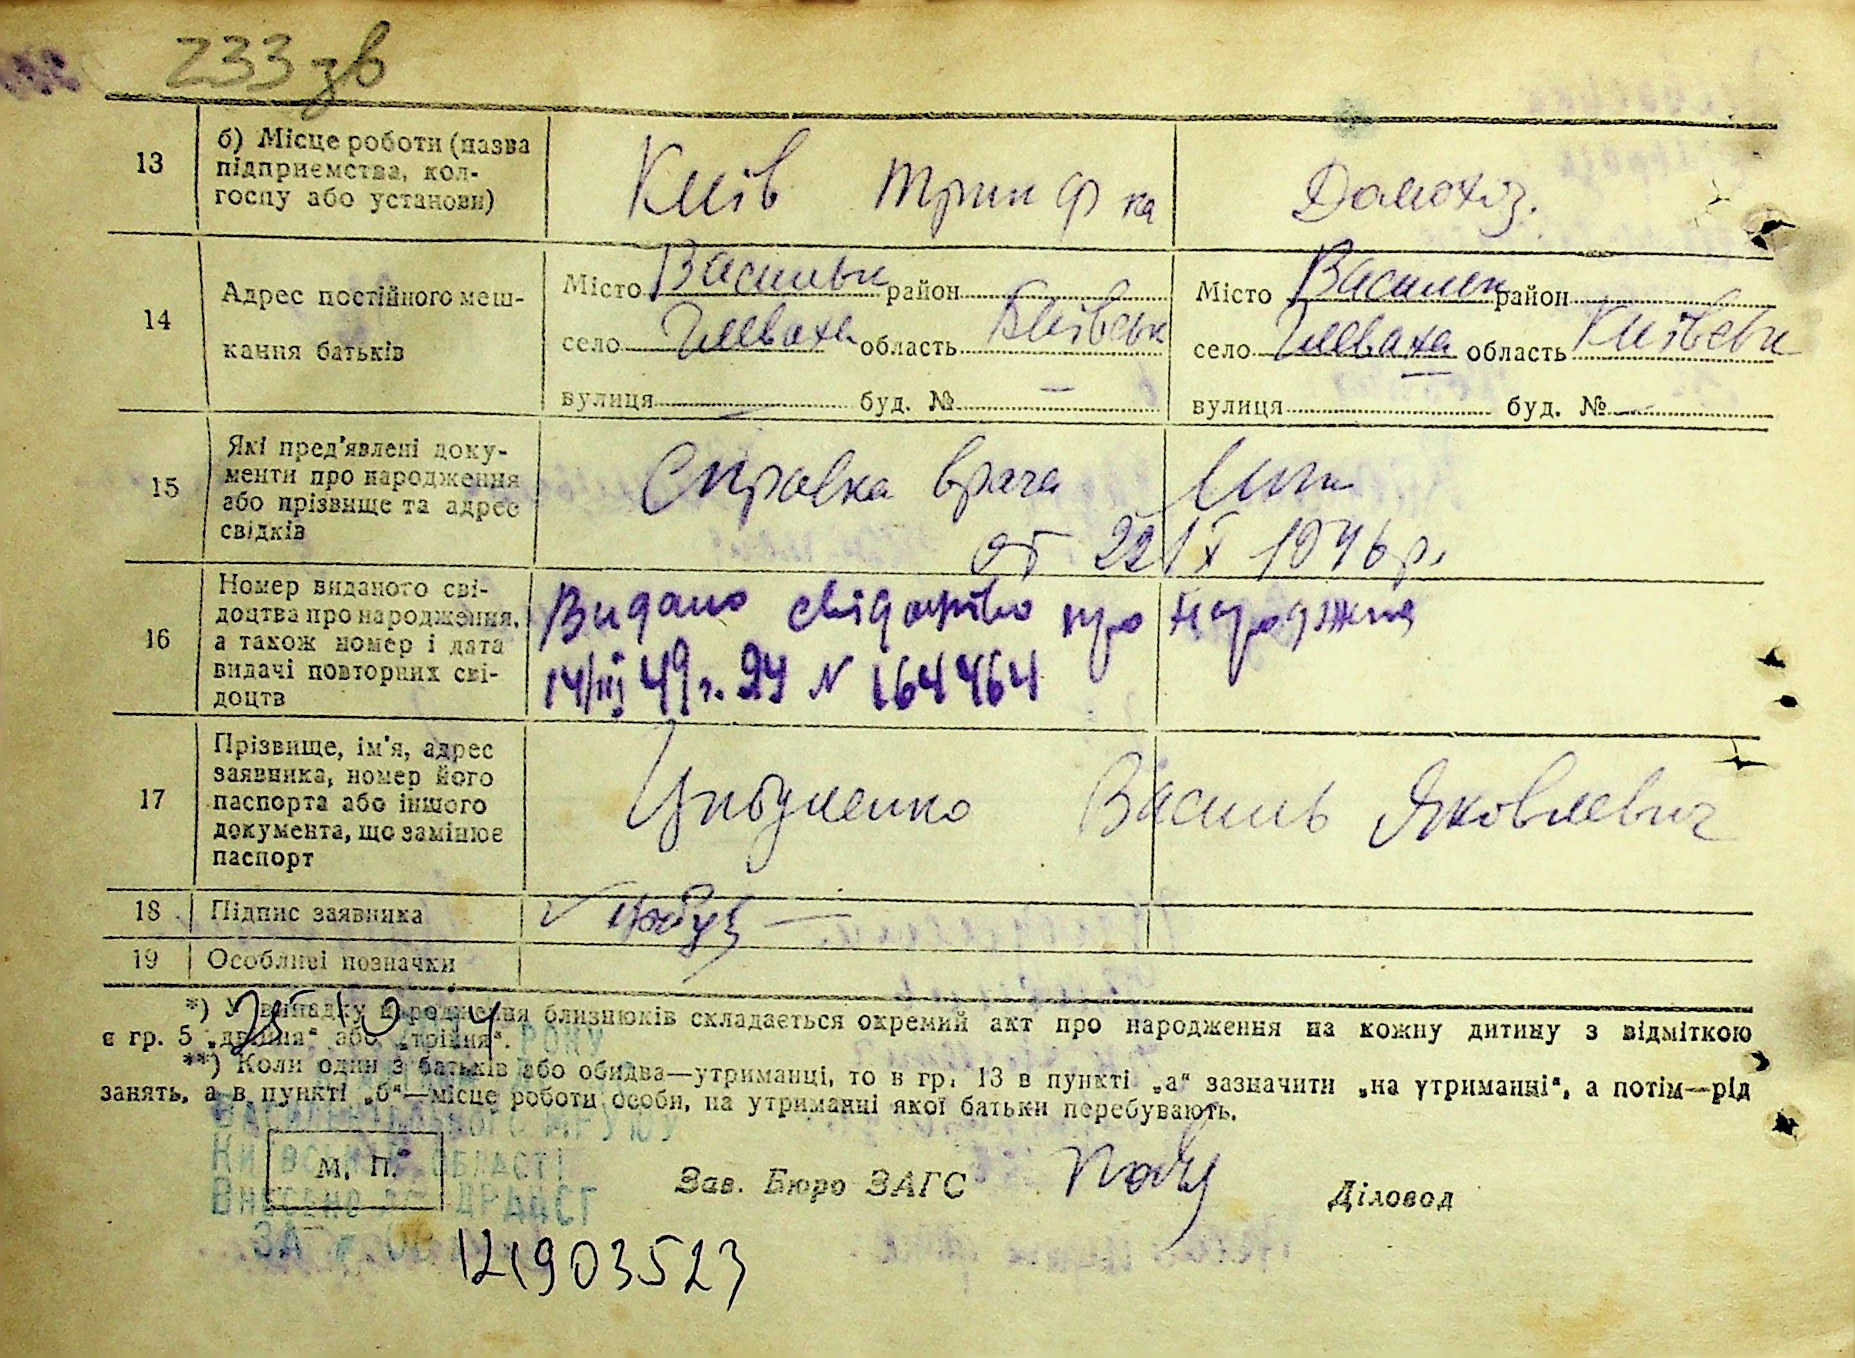 233 зв
13 б) Місце роботи (назва підприємства, колгоспу або установи) Київ Домохоз.
14 Адрес постійного мешкання батьків
Місто Васильк район Місто Василек район
село Глеваха область Київськ село Глеваха область Київськ
вулиця буд. № — вулиця буд. №
15 Які пред'явлені документи про народження або прізвище та адрес свідків Справка врача
от 22 IX 1946 р.
16 Номер виданого свідоцтва про народження, а також номер і дата видачі повторних свідоцтв Видано свідоцтво про народжня
14/III 49 г. № 164464
17 Прізвище, ім'я, адрес заявника, номер його паспорта або іншого документа, що замінює паспорт Василь Яковлевич
18 Підпис заявника
19 Особливі позначки
*) У випадку народження близнюків складається окремий акт про народження на кожну дитину з відміткою
в гр. 5 „двійня“ або „трійня“.
**) Коли один з батьків або обидва—утриманці, то в гр. 13 в пункті „а“ зазначити „на утриманні“, а потім—рід
занять, а в пункті „б“—місце роботи особи, на утриманні якої батьки перебувають.
РОКУ
Київської області
М. П.
Внесено до ДРАЦСГ
ЗА №
Зав. Бюро ЗАГС Діловод
121903523